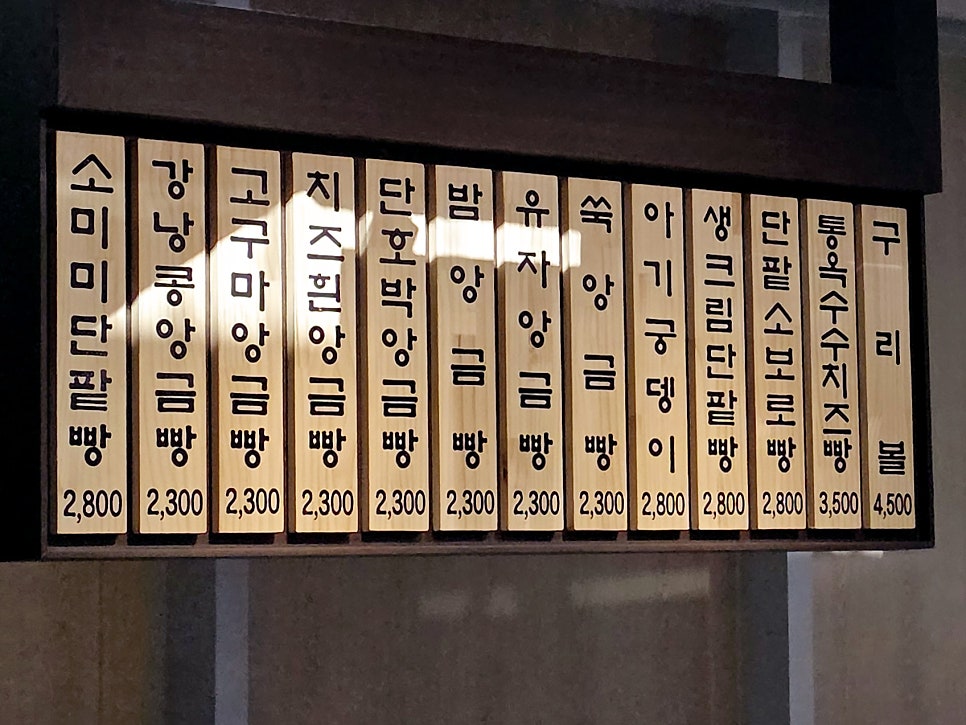 소미미단팥빵 2,800
강낭콩앙금빵 2,300
고구마앙금빵 2,300
치즈흰앙금빵 2,300
단호박앙금빵 2,300
밤앙금빵 2,300
유자앙금빵 2,300
쑥앙금빵 2,300
아기궁뎅이 2,800
생크림단팥빵 2,800
단팥소보로빵 2,800
통옥수수치즈빵 3,500
구리볼 4,500